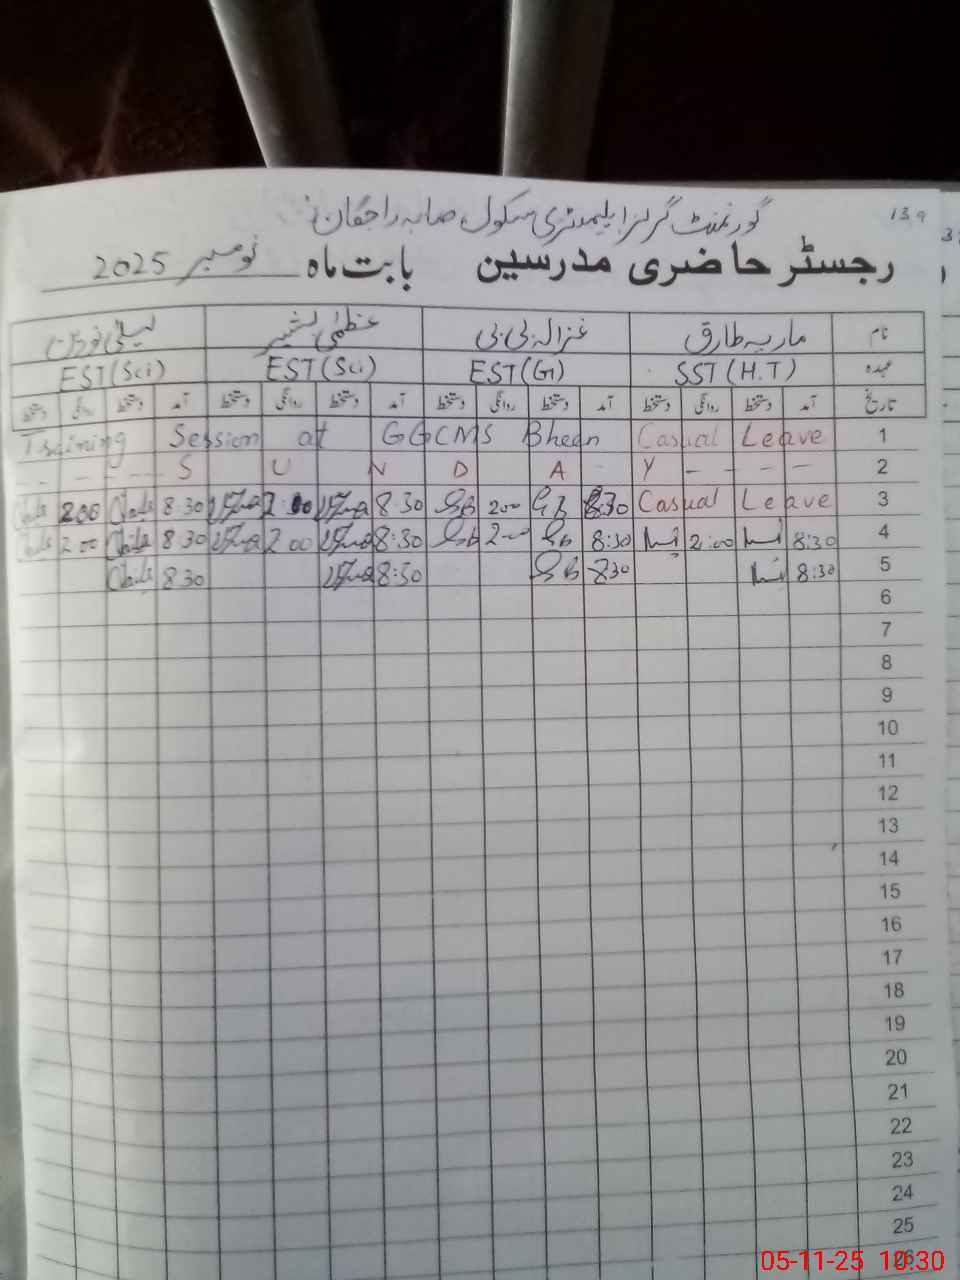 139
گورنمنٹ گرلز ایلیمنٹری سکول
رجسٹر حاضری مدرسین بابت ماہ نومبر 2025
نام ماریہ طارق غزالہ بی بی عظمٰی بشیر
عہدہ SST (H.T) EST (G) EST (Sci) EST (Sci)
تاریخ آمد دستخط روانگی دستخط آمد دستخط روانگی دستخط آمد دستخط روانگی دستخط آمد دستخط روانگی دستخط
Training Session at GGCMS Bheen Casual Leave 1
- - - - S U N D A - Y - - - - 2
200 8:30 2:00 8:30 200 8:30 Casual Leave 3
2:00 8:30 2:00 8:30 GB 2:00 GB 8:30 2:00 8:30 4
8:30 8:30 GB 8:30 8:30 5
6
7
8
9
10
11
12
13
14
15
16
17
18
19
20
21
22
23
24
25
26
05-11-25 10:30